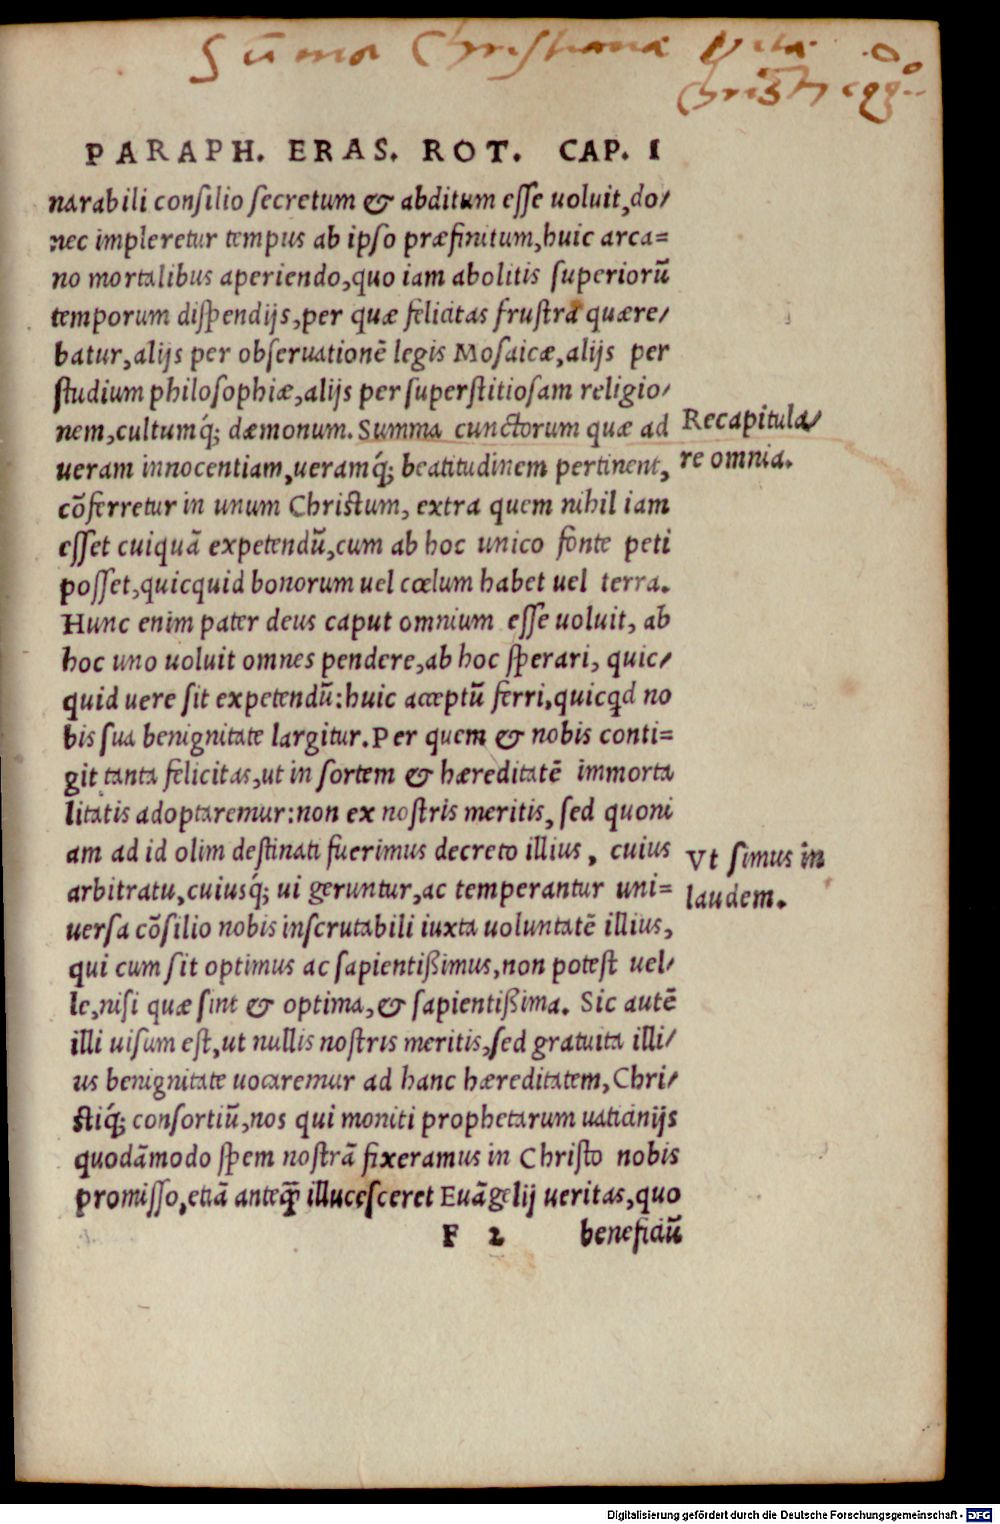 Sūma Christianæ vitæ
PARAPH. ERAS. ROT. CAP. I
narabili consilio secretum & abditum esse uoluit, do/
nec impleretur tempus ab ipso præfinitum, huic arca=
no mortalibus aperiendo, quo iam abolitis superiorū
temporum dispendijs, per quæ felicitas frustra quære/
batur, alijs per obseruationē legis Mosaicæ, alijs per
studium philosophiæ, alijs per superstitiosam religio/
nem, cultumq́; dæmonum. Summa cunctorum quæ ad
Recapitula/
ueram innocentiam, ueramq́; beatitudinem pertinent,
re omnia.
cōferretur in unum Christum, extra quem nihil iam
esset cuiquā expetendū, cum ab hoc unico fonte peti
posset, quicquid bonorum uel cœlum habet uel terra.
Hunc enim pater deus caput omnium esse uoluit, ab
hoc uno uoluit omnes pendere, ab hoc sperari, quic/
quid uere sit expetendū: huic acceptū ferri, quicqd no
bis sua benignitate largitur. Per quem & nobis conti=
git tanta felicitas, ut in sortem & hæreditatē immorta
litatis adoptaremur: non ex nostris meritis, sed quoni
am ad id olim destinati fuerimus decreto illius, cuius
Vt simus in
arbitratu, cuiusq́; ui geruntur, ac temperantur uni=
laudem.
uersa cōsilio nobis inscrutabili iuxta uoluntatē illius,
qui cum sit optimus ac sapientißimus, non potest uel/
le, nisi quæ sint & optima, & sapientißima. Sic autē
illi uisum est, ut nullis nostris meritis, sed gratuita illi/
us benignitate uocaremur ad hanc hæreditatem, Chri/
stiq́; consortiū, nos qui moniti prophetarum uaticinijs
quodāmodo spem nostrā fixeramus in Christo nobis
promisso, etiā anteq̃ illucesceret Euāgelij ueritas, quo
F 2 beneficiū
Digitalisierung gefördert durch die Deutsche Forschungsgemeinschaft - DFG